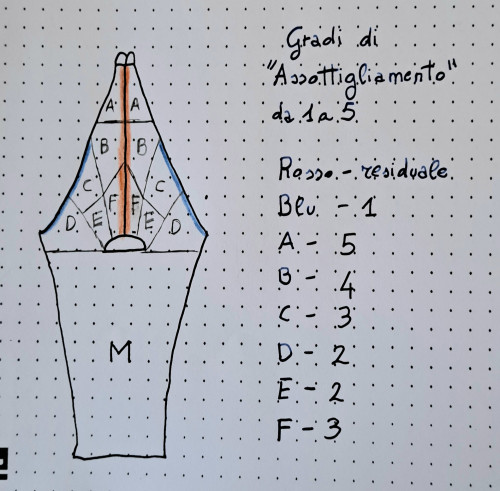 Gradi di
"Assottigliamento"
da 1 a 5
Rosso - residuale
Blu - 1
A - 5
B - 4
C - 3
D - 2
E - 2
F - 3
A A
B B
C C
F F
D E E D
M